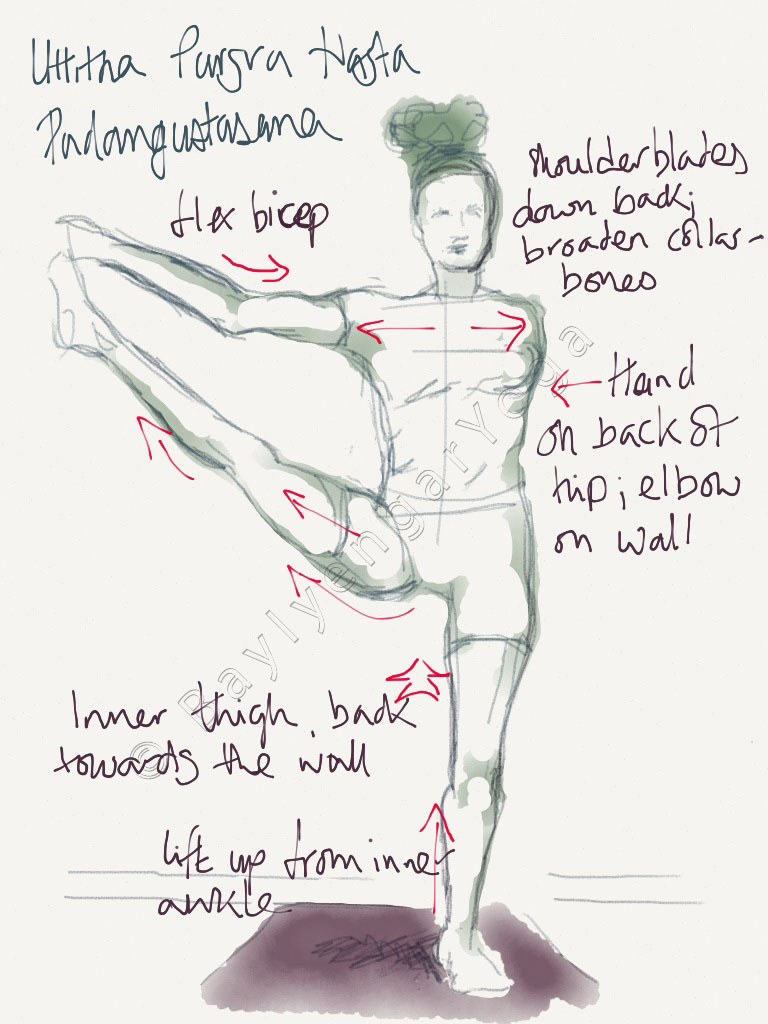 Uttitha Parsva Hasta
Padangustasana
flex bicep
shoulderblades
down back;
broaden collar-
bones
Hand
on back of
hip; elbow
on wall
Inner thigh back
towards the wall
lift up from inner
ankle
© RaylyengarYoga